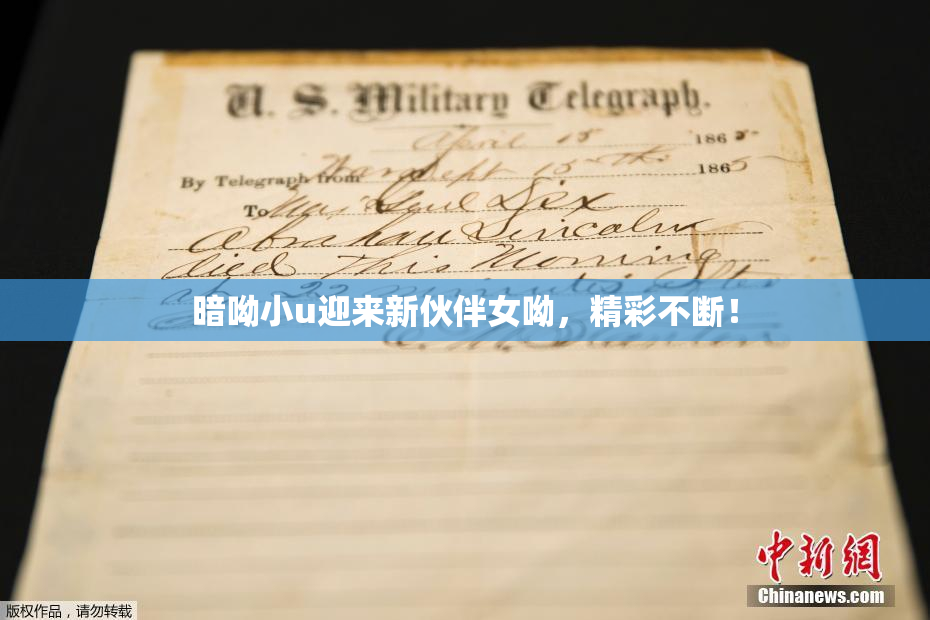 U. S. Military Telegraph.
April 15 1865
By Telegraph from War Dept 15th 1865
To Maj Genl Dix
Abraham Lincoln
died This Morning
at 22 minutes after
暗呦小u迎来新伙伴女呦，精彩不断！
E. M. Stanton
中新网
Chinanews.com
版权作品，请勿转载